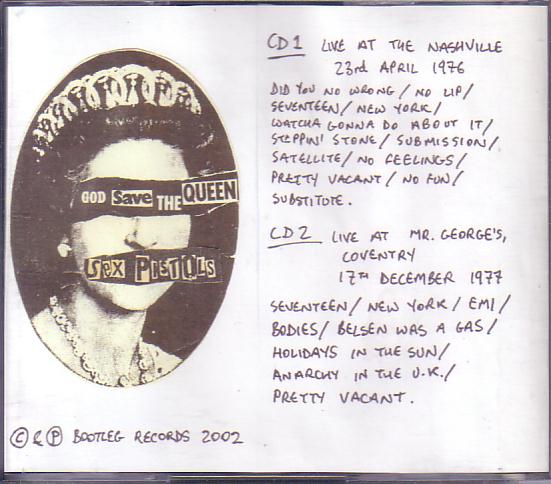 GOD Save THE QUEEN
Sex PISTOLS
CD1 LIVE AT THE NASHVILLE
23rd APRIL 1976
DID YOU NO WRONG / NO LIP /
SEVENTEEN / NEW YORK /
WATCHA GONNA DO ABOUT IT /
STEPPIN' STONE / SUBMISSION /
SATELLITE / NO FEELINGS /
PRETTY VACANT / NO FUN /
SUBSTITUTE.
CD2 LIVE AT MR. GEORGE'S,
COVENTRY
17TH DECEMBER 1977
SEVENTEEN / NEW YORK / EMI /
BODIES / BELSEN WAS A GAS /
HOLIDAYS IN THE SUN /
ANARCHY IN THE U.K. /
PRETTY VACANT.
© & ℗ BOOTLEG RECORDS 2002